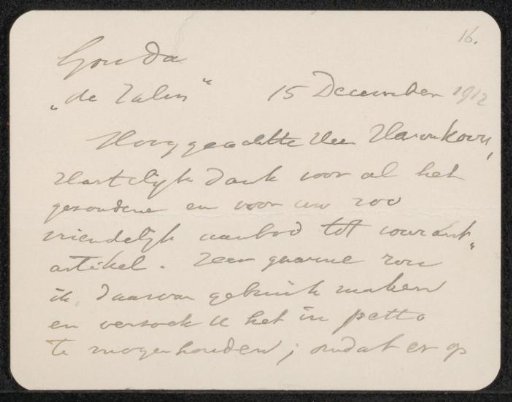 16.
Gouda
„de Zalm" 15 December 1912
Hooggeachte Heer
Hartelijk dank voor al het
gezondene en voor uw zoo
vriendelijk aanbod tot courant"
artikel. Zeer gaarne zou
ik daarvan gebruik maken
en verzoek U het in petto
te mogen houden; omdat er op